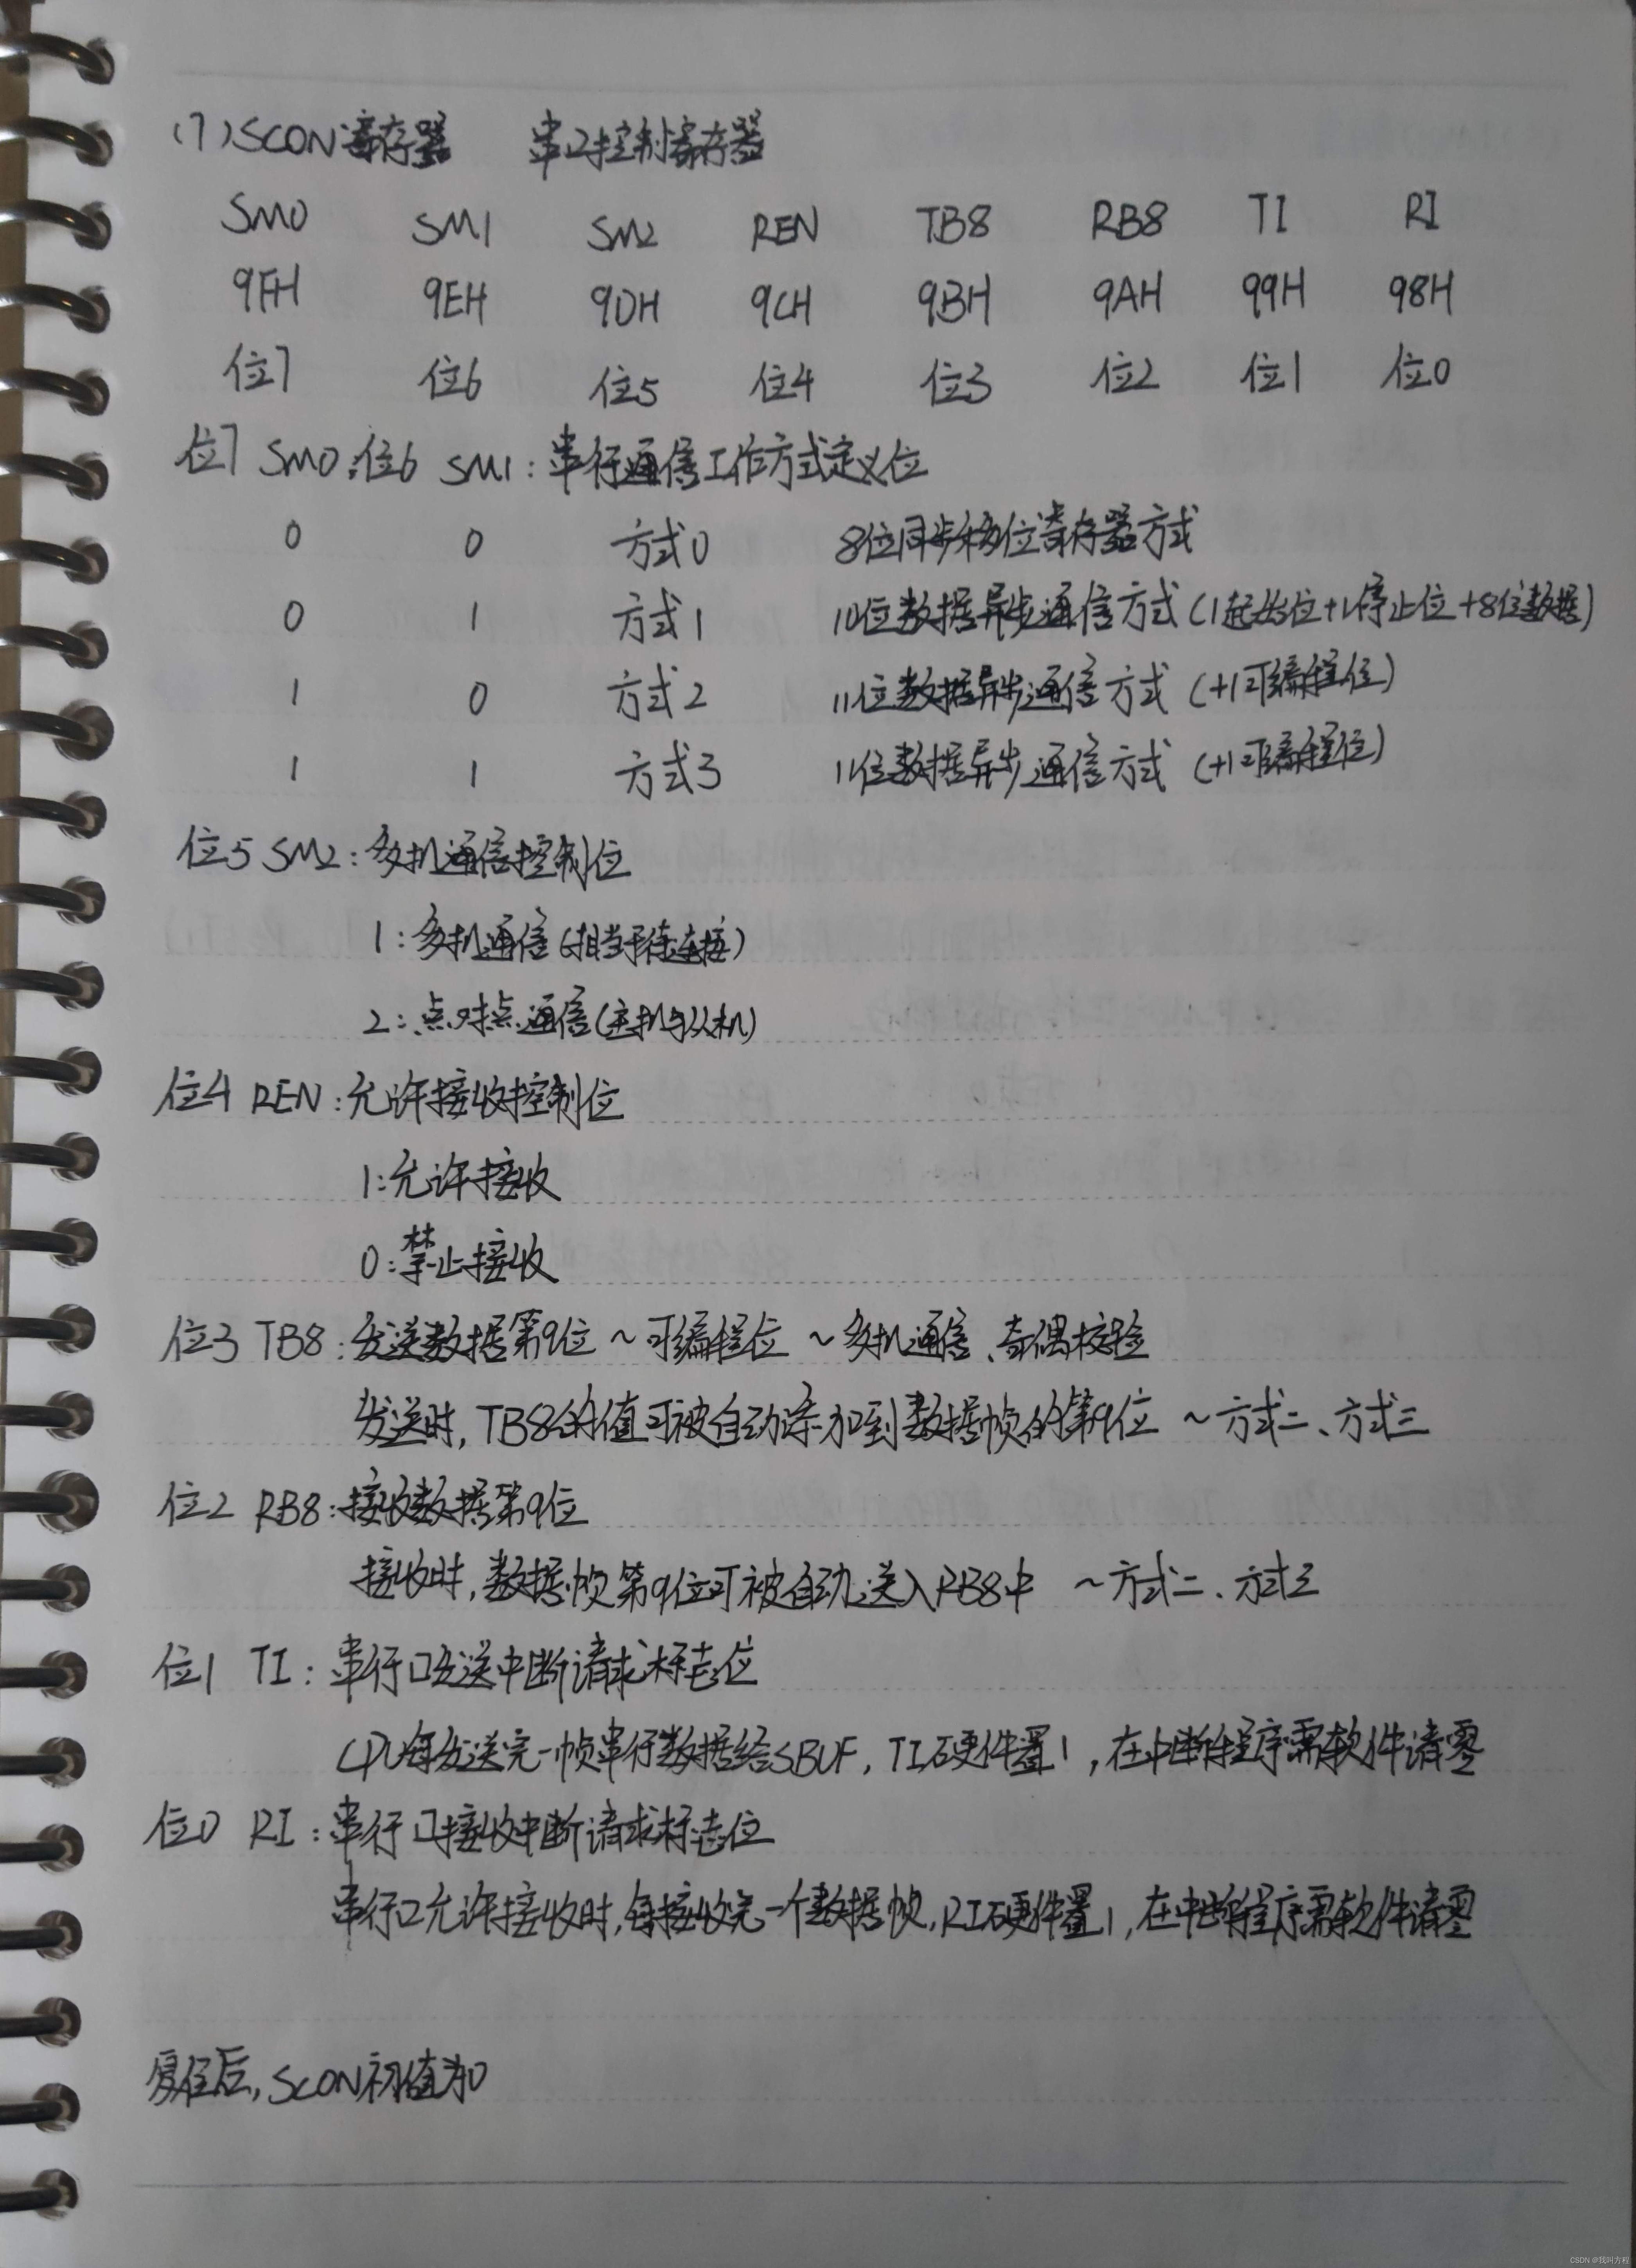 (7)SCON寄存器 串口控制寄存器
SM0 SM1 SM2 REN TB8 RB8 TI RI
9FH 9EH 9DH 9CH 9BH 9AH 99H 98H
位7 位6 位5 位4 位3 位2 位1 位0
位7 SM0;位6 SM1:串行通信工作方式定义位
0 0 方式0 8位同步移位寄存器方式
0 1 方式1 10位数据异步通信方式(1起始位+1停止位+8位数据)
1 0 方式2 11位数据异步通信方式(+1可编程位)
1 1 方式3 11位数据异步通信方式(+1可编程位)
位5 SM2:多机通信控制位
1:多机通信(相当于待连接)
2:点对点通信(主机与从机)
位4 REN:允许接收控制位
1:允许接收
0:禁止接收
位3 TB8:发送数据第9位~可编程位~多机通信、奇偶校验
发送时,TB8的值可被自动添加到数据帧的第9位~方式二、方式三
位2 RB8:接收数据第9位
接收时,数据帧第9位可被自动送入RB8中~方式二、方式三
位1 TI:串行口发送中断请求标志位
CPU每发送完一帧串行数据给SBUF,TI硬件置1,在中断程序需软件请零
位0 RI:串行口接收中断请求标志位
串行口允许接收时,每接收完一个数据帧,RI硬件置1,在中断程序需软件请零
复位后,SCON初值为0
CSDN @我叫方程